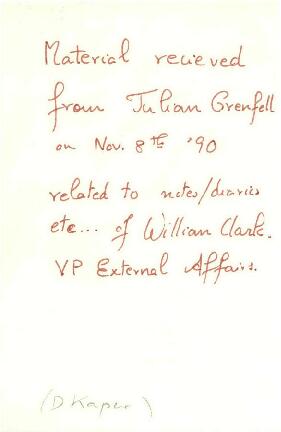 Material recieved
from Julian Grenfell
on Nov. 8th '90
related to notes/diaries
etc... of William Clark.
VP External Affairs.
(D Kaper)